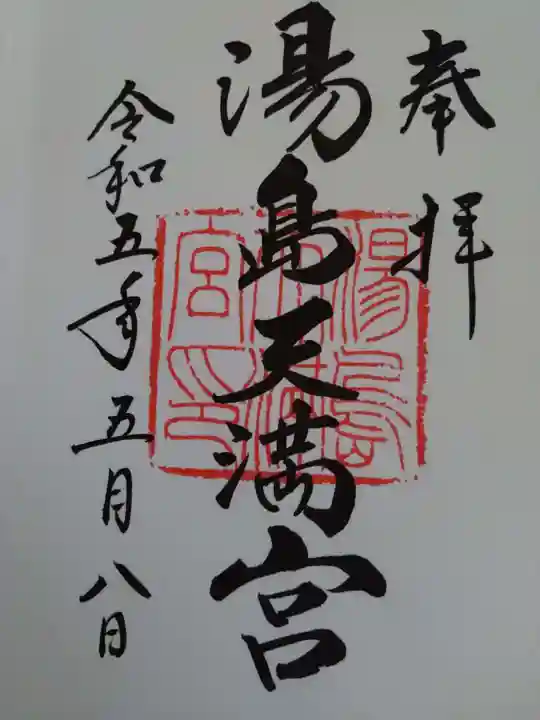 奉拝
湯島天満宮
湯島天満宮印
令和五年五月八日